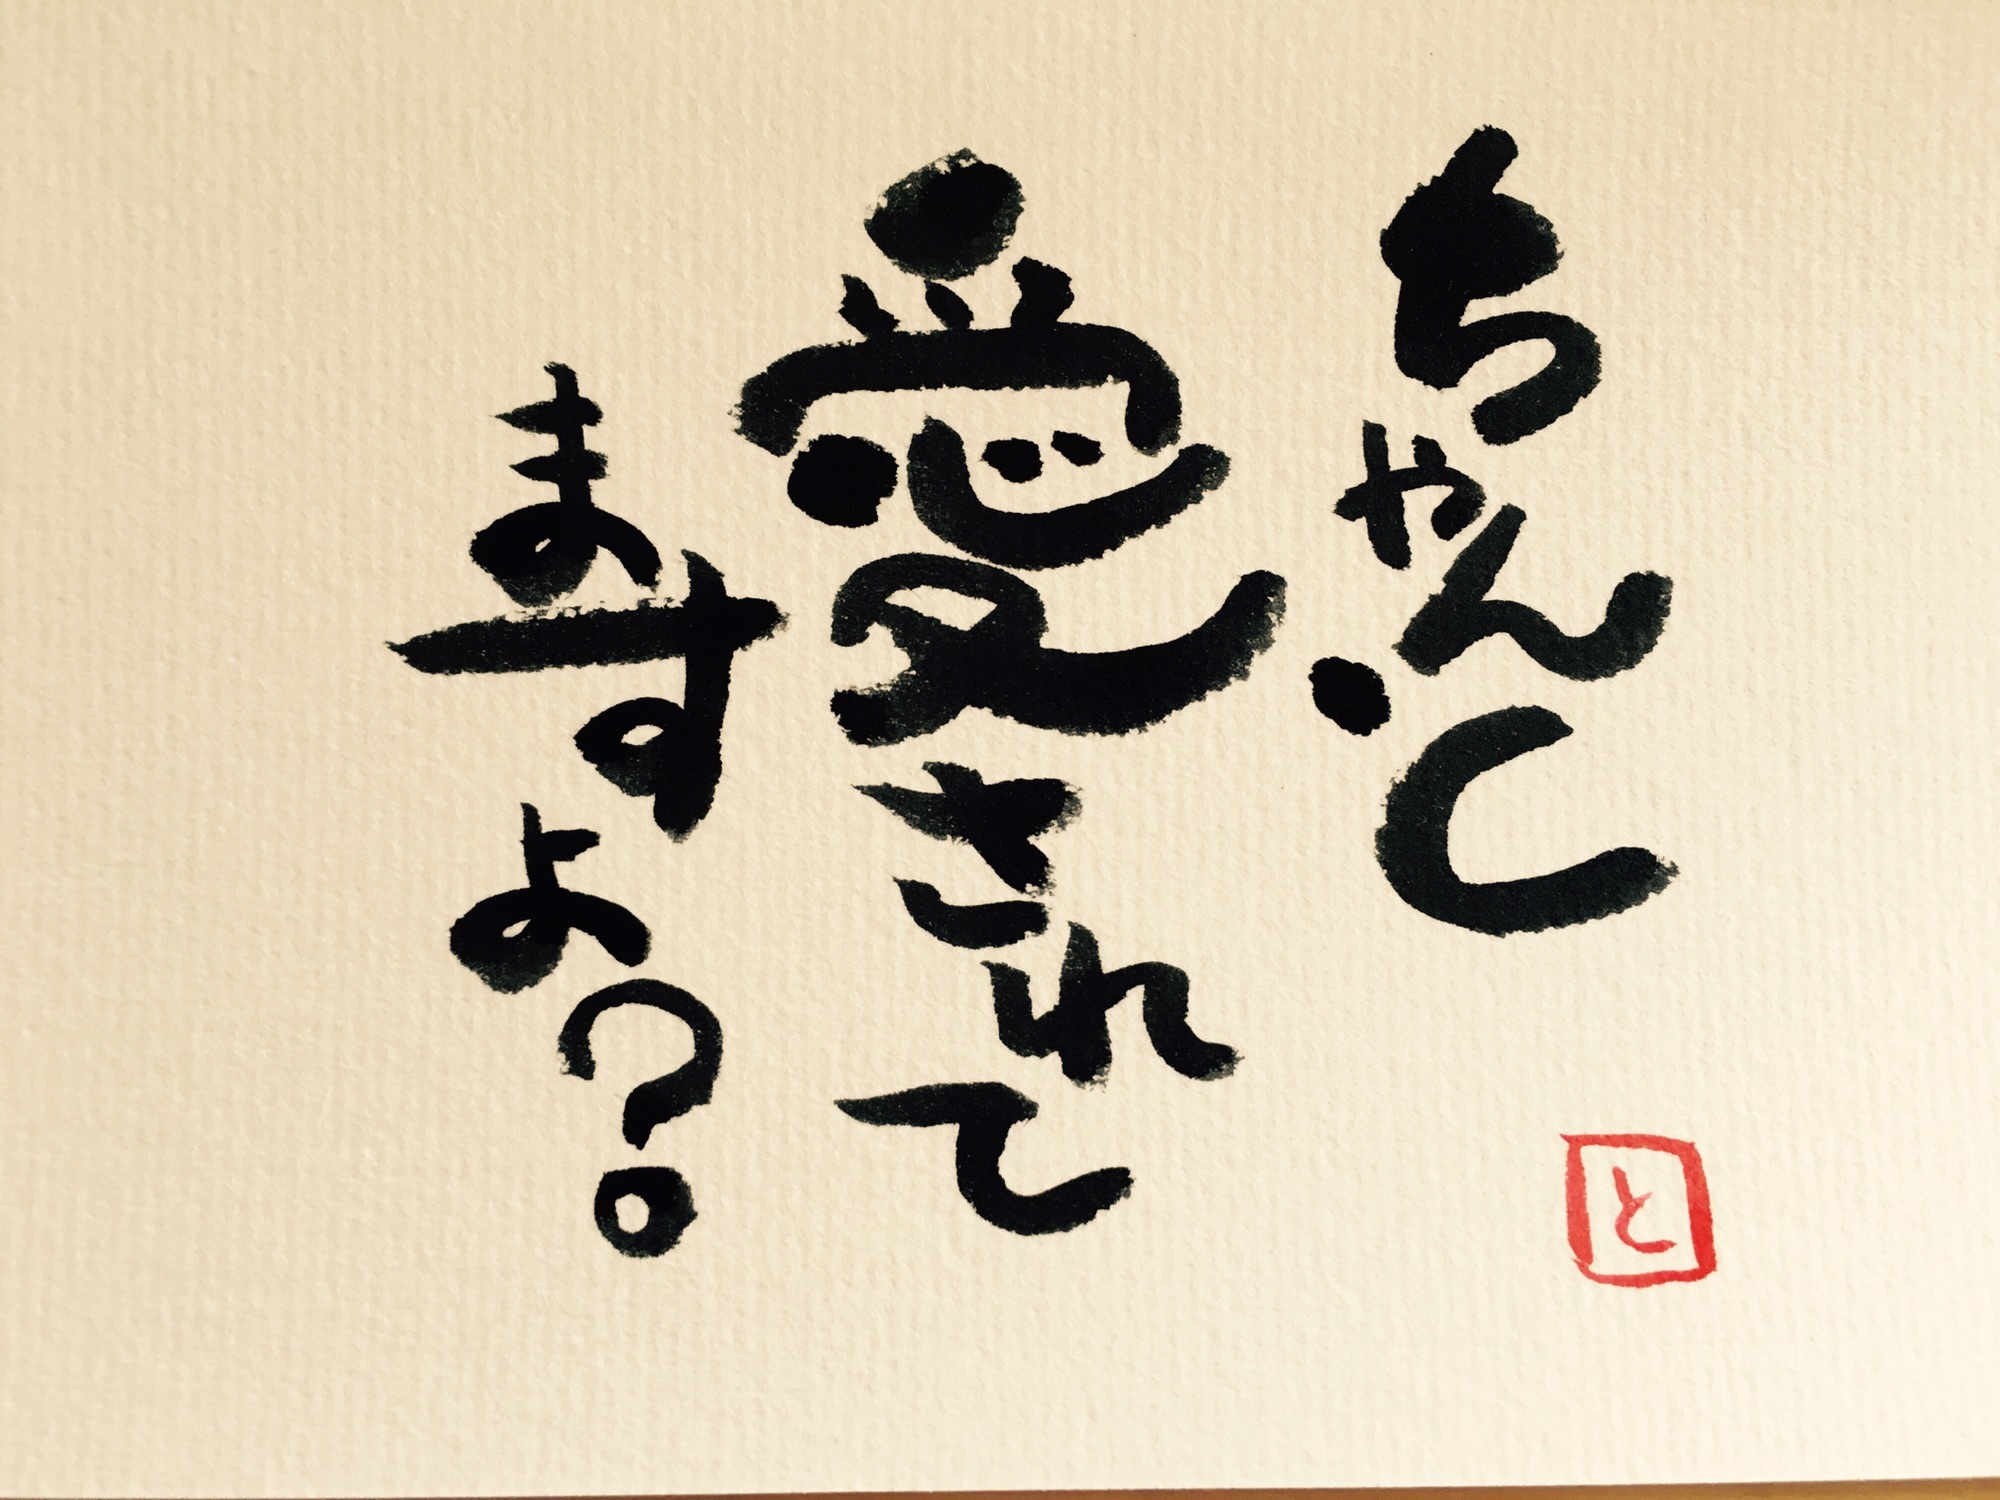 ちゃんと
愛されて
ますよ?
と